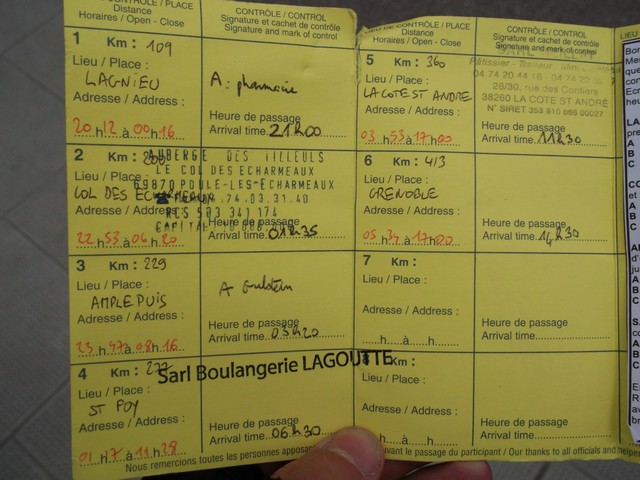 CONTRÔLE / PLACE
Distance
Horaires / Open - Close
CONTRÔLE / CONTROL
Signature et cachet de contrôle
Signature and mark of control
1 Km : 109
Lieu / Place :
LAGNIEU
Adresse / Address :
20 h 12 à 00 h 16
A : pharmacie
Heure de passage
Arrival time 21H00
2 Km : 200
Lieu / Place :
COL DES ECHARMEAUX
Adresse / Address :
22 h 53 à 06 h 20
AUBERGE DES TILLEULS
LE COL DES ECHARMEAUX
69870 POULE-LES-ECHARMEAUX
.74.03.31.40
RCS 503 341 174
CAPITAL
Heure de passage
Arrival time 01H35
3 Km : 229
Lieu / Place :
AMPLEPUIS
Adresse / Address :
23 h 47 à 08 h 16
A
Heure de passage
Arrival time 03H20
4 Km : 277
Lieu / Place :
ST POY
Adresse / Address :
01 h 17 à 11 h 28
Sarl Boulangerie LAGOUTTE
Heure de passage
Arrival time 06H30
DE CONTRÔLE / PLACE
Distance
Horaires / Open - Close
CONTRÔLE / CONTROL
Signature et cachet de contrôle
Signature and mark of control
5 Km : 360
Lieu / Place :
LA COTE ST ANDRE
Adresse / Address :
03 h 53 à 17 h 00
SARL
Pâtissier - Traiteur
04 74 20 44 16 - 04 74 20
28/30, rue des Contiers
38260 LA COTE ST ANDRÉ
N° SIRET 353 810 666 00027
Heure de passage
Arrival time 11H30
6 Km : 413
Lieu / Place :
GRENOBLE
Adresse / Address :
05 h 34 à 17 h 00
Heure de passage
Arrival time 14H30
7 Km :
Lieu / Place :
Adresse / Address :
h à h
Heure de passage
Arrival time
8 Km :
Lieu / Place :
Adresse / Address :
h à h
Heure de passage
Arrival time
Nous remercions toutes les personnes apposa
uvant le passage du participant / Our thanks to all officials and helpe